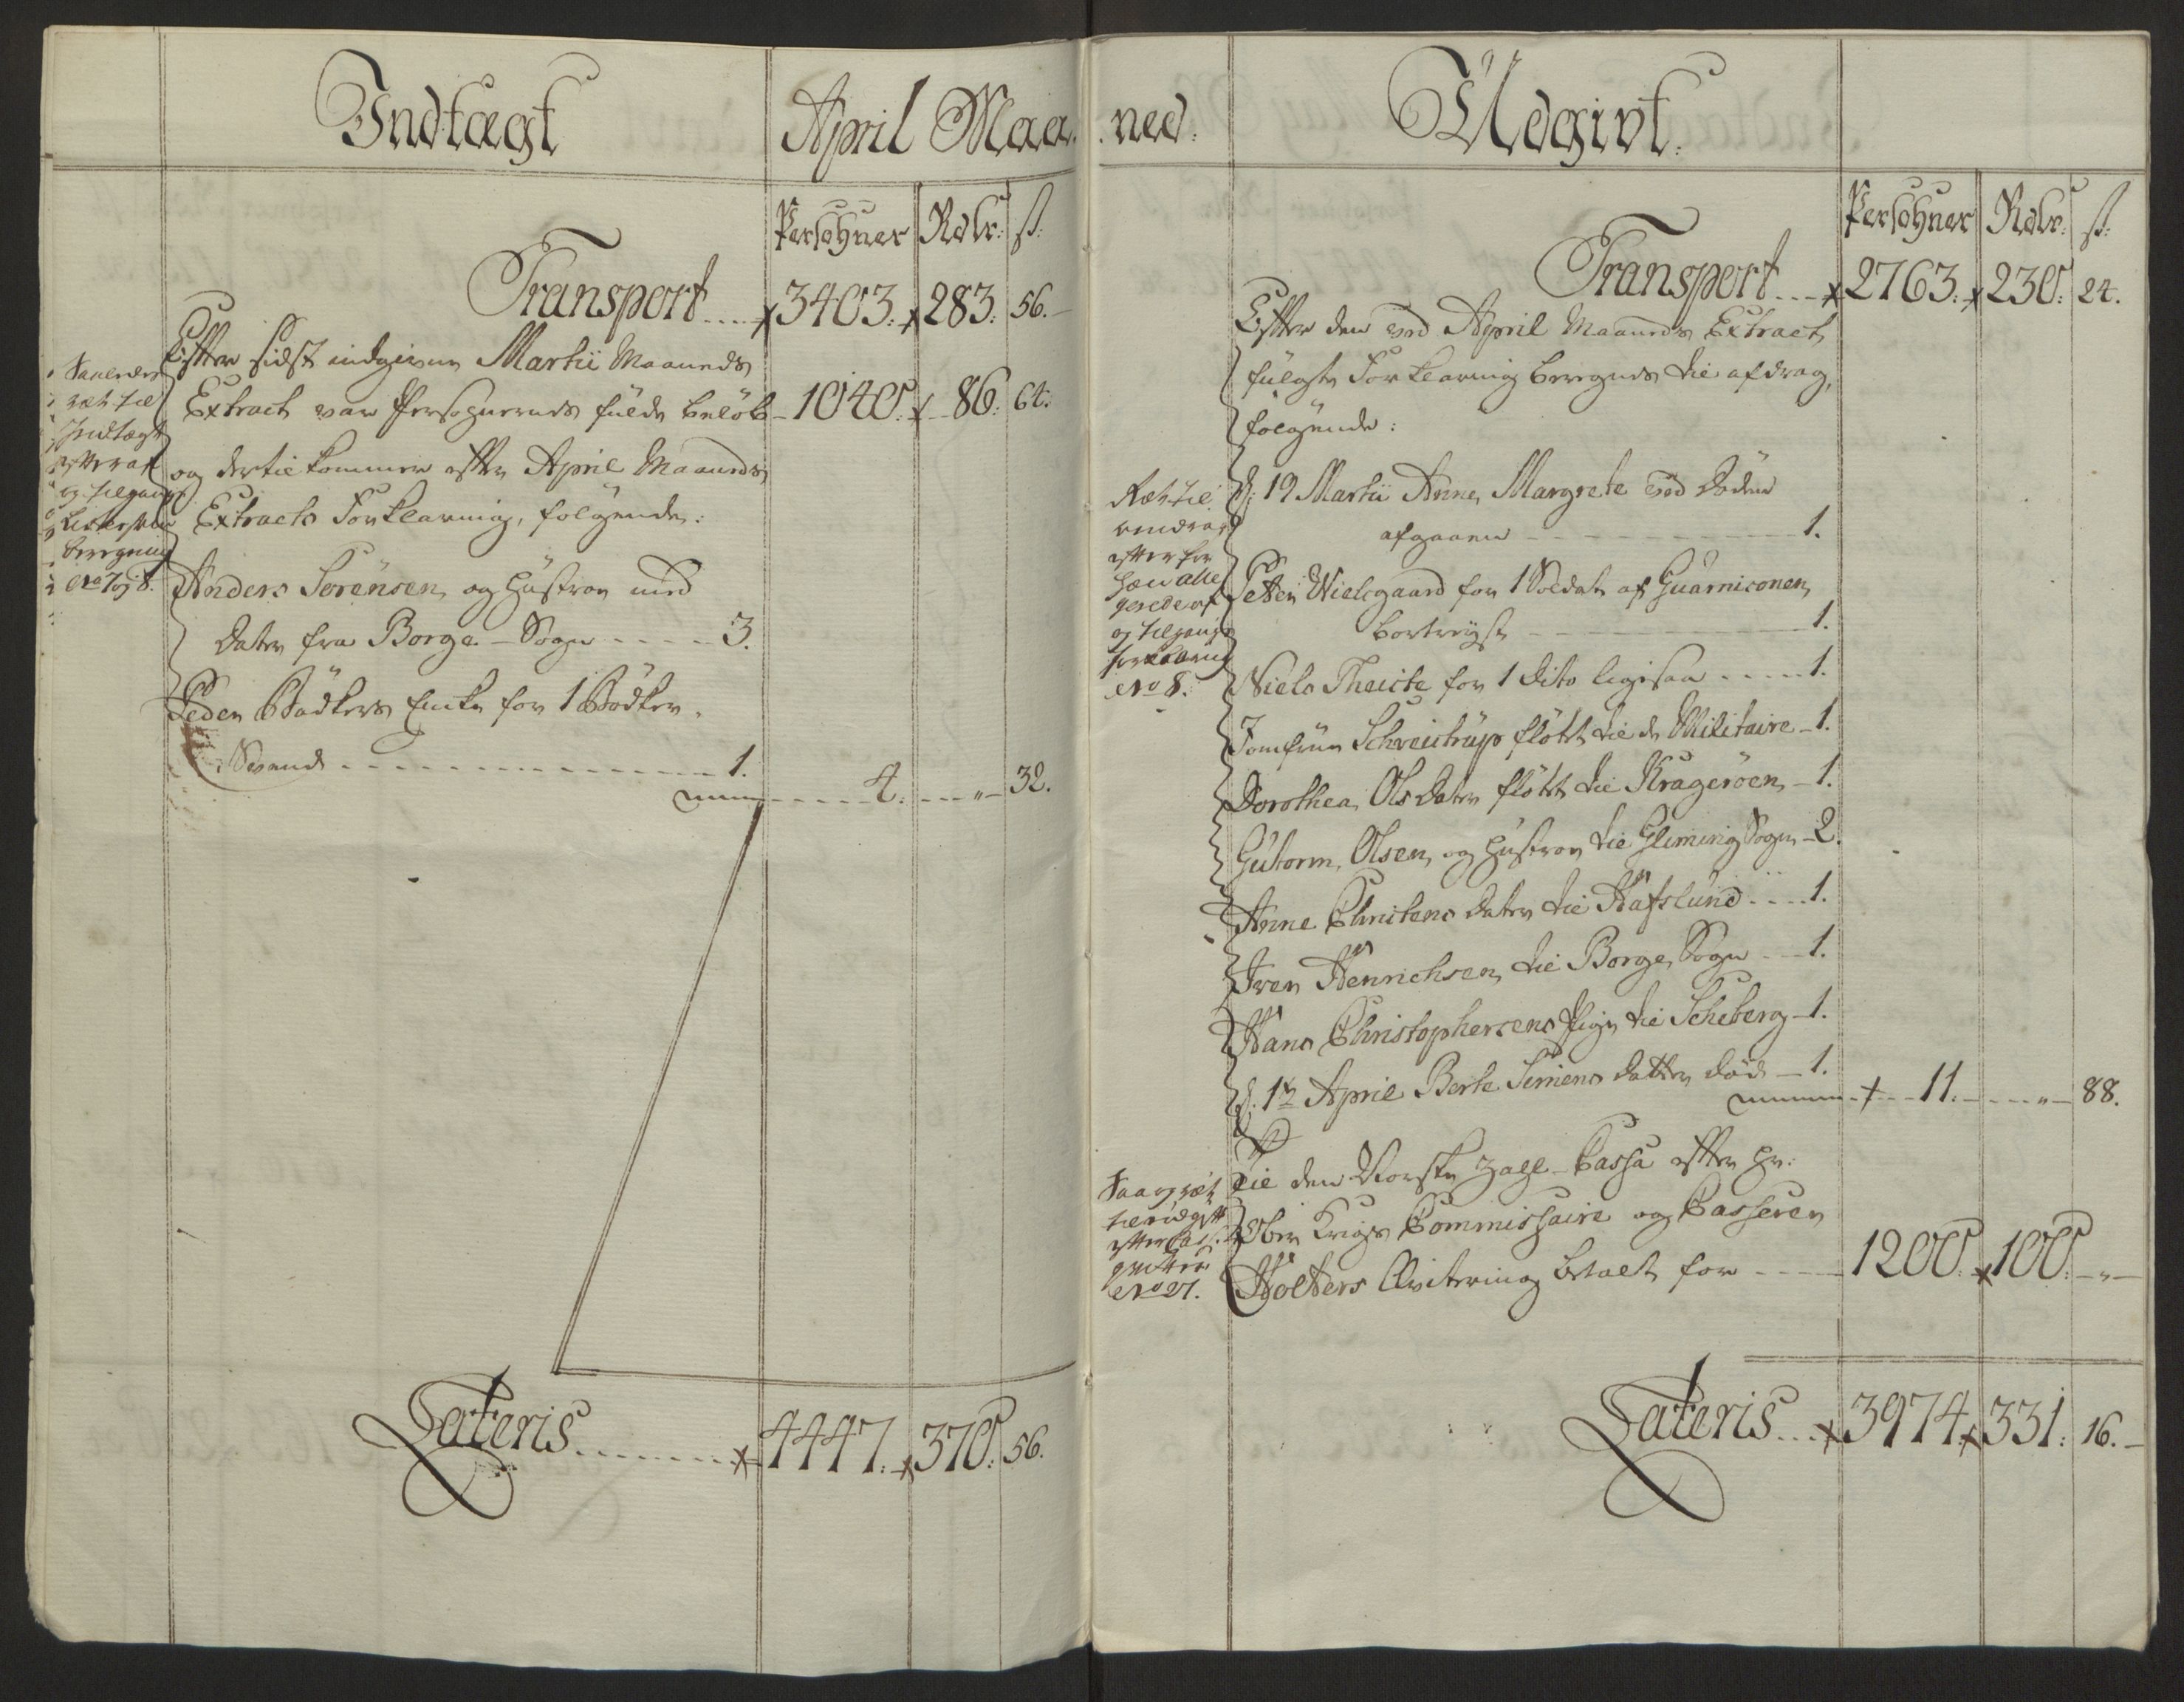 Indtægt
April Maa
Persohner Rdlr: ß:
Transport 3403. 283. 56.
Efter sidst indgivne Martii Maaneds
Extract var Persohnernes fulde beløb 1040. 86. 64.
og dertil kommer efter April Maaneds
Extracts Forklaring, følgende:
Anders Sørensen og Hustroe med
Dater fra Borge Sogn 3.
Peder Bødkers Enke for 1 Bødker
Svend 1.
4. " 32.
Lateris 4447. 370. 56.
ræt til
Indtægt
efter af
og tilgangs
beregning
No 7 og 8.
ned.
Udgivt.
Persohner Rdlr: ß:
Transport 2763. 230. 24.
Efter den ved April Maaneds Extract
fulgte Forklaring beregnes til afdrag,
følgende:
d: 19 Martii Anne Margrete ved Døden
afgaaen 1.
Peter Wielsgaard for 1 Soldat af Guarnisonen
bortreyst 1.
Niels Theiste for 1 dito ligesaa 1.
Jomfrue Schveistrup fløtt til de Militaire 1.
Dorothea Ols Dater fløtt til Kragerøen 1.
Gutorm Olsen og Hustroe til Glemmig Sogn 2.
Anne Christens Dater til Hafslund 1.
Iver Henrichsen til Borge Sogn 1.
Hans Christophersens Pige til Scheberg 1.
d. 12 April Berte Simens Datter død 1.
11. " 88.
Til den Norske Zahl-Cassa efter Hr:
Ober Krigs Commissaire og Casserer
Holters Qvitering betalt for 1200. 100. "
Lateris 3974. 331. 16.
Ræt til
efter for
og tilgangs
forklaring
No 8.
Saa og ræt
til udgift
efter
No 27.